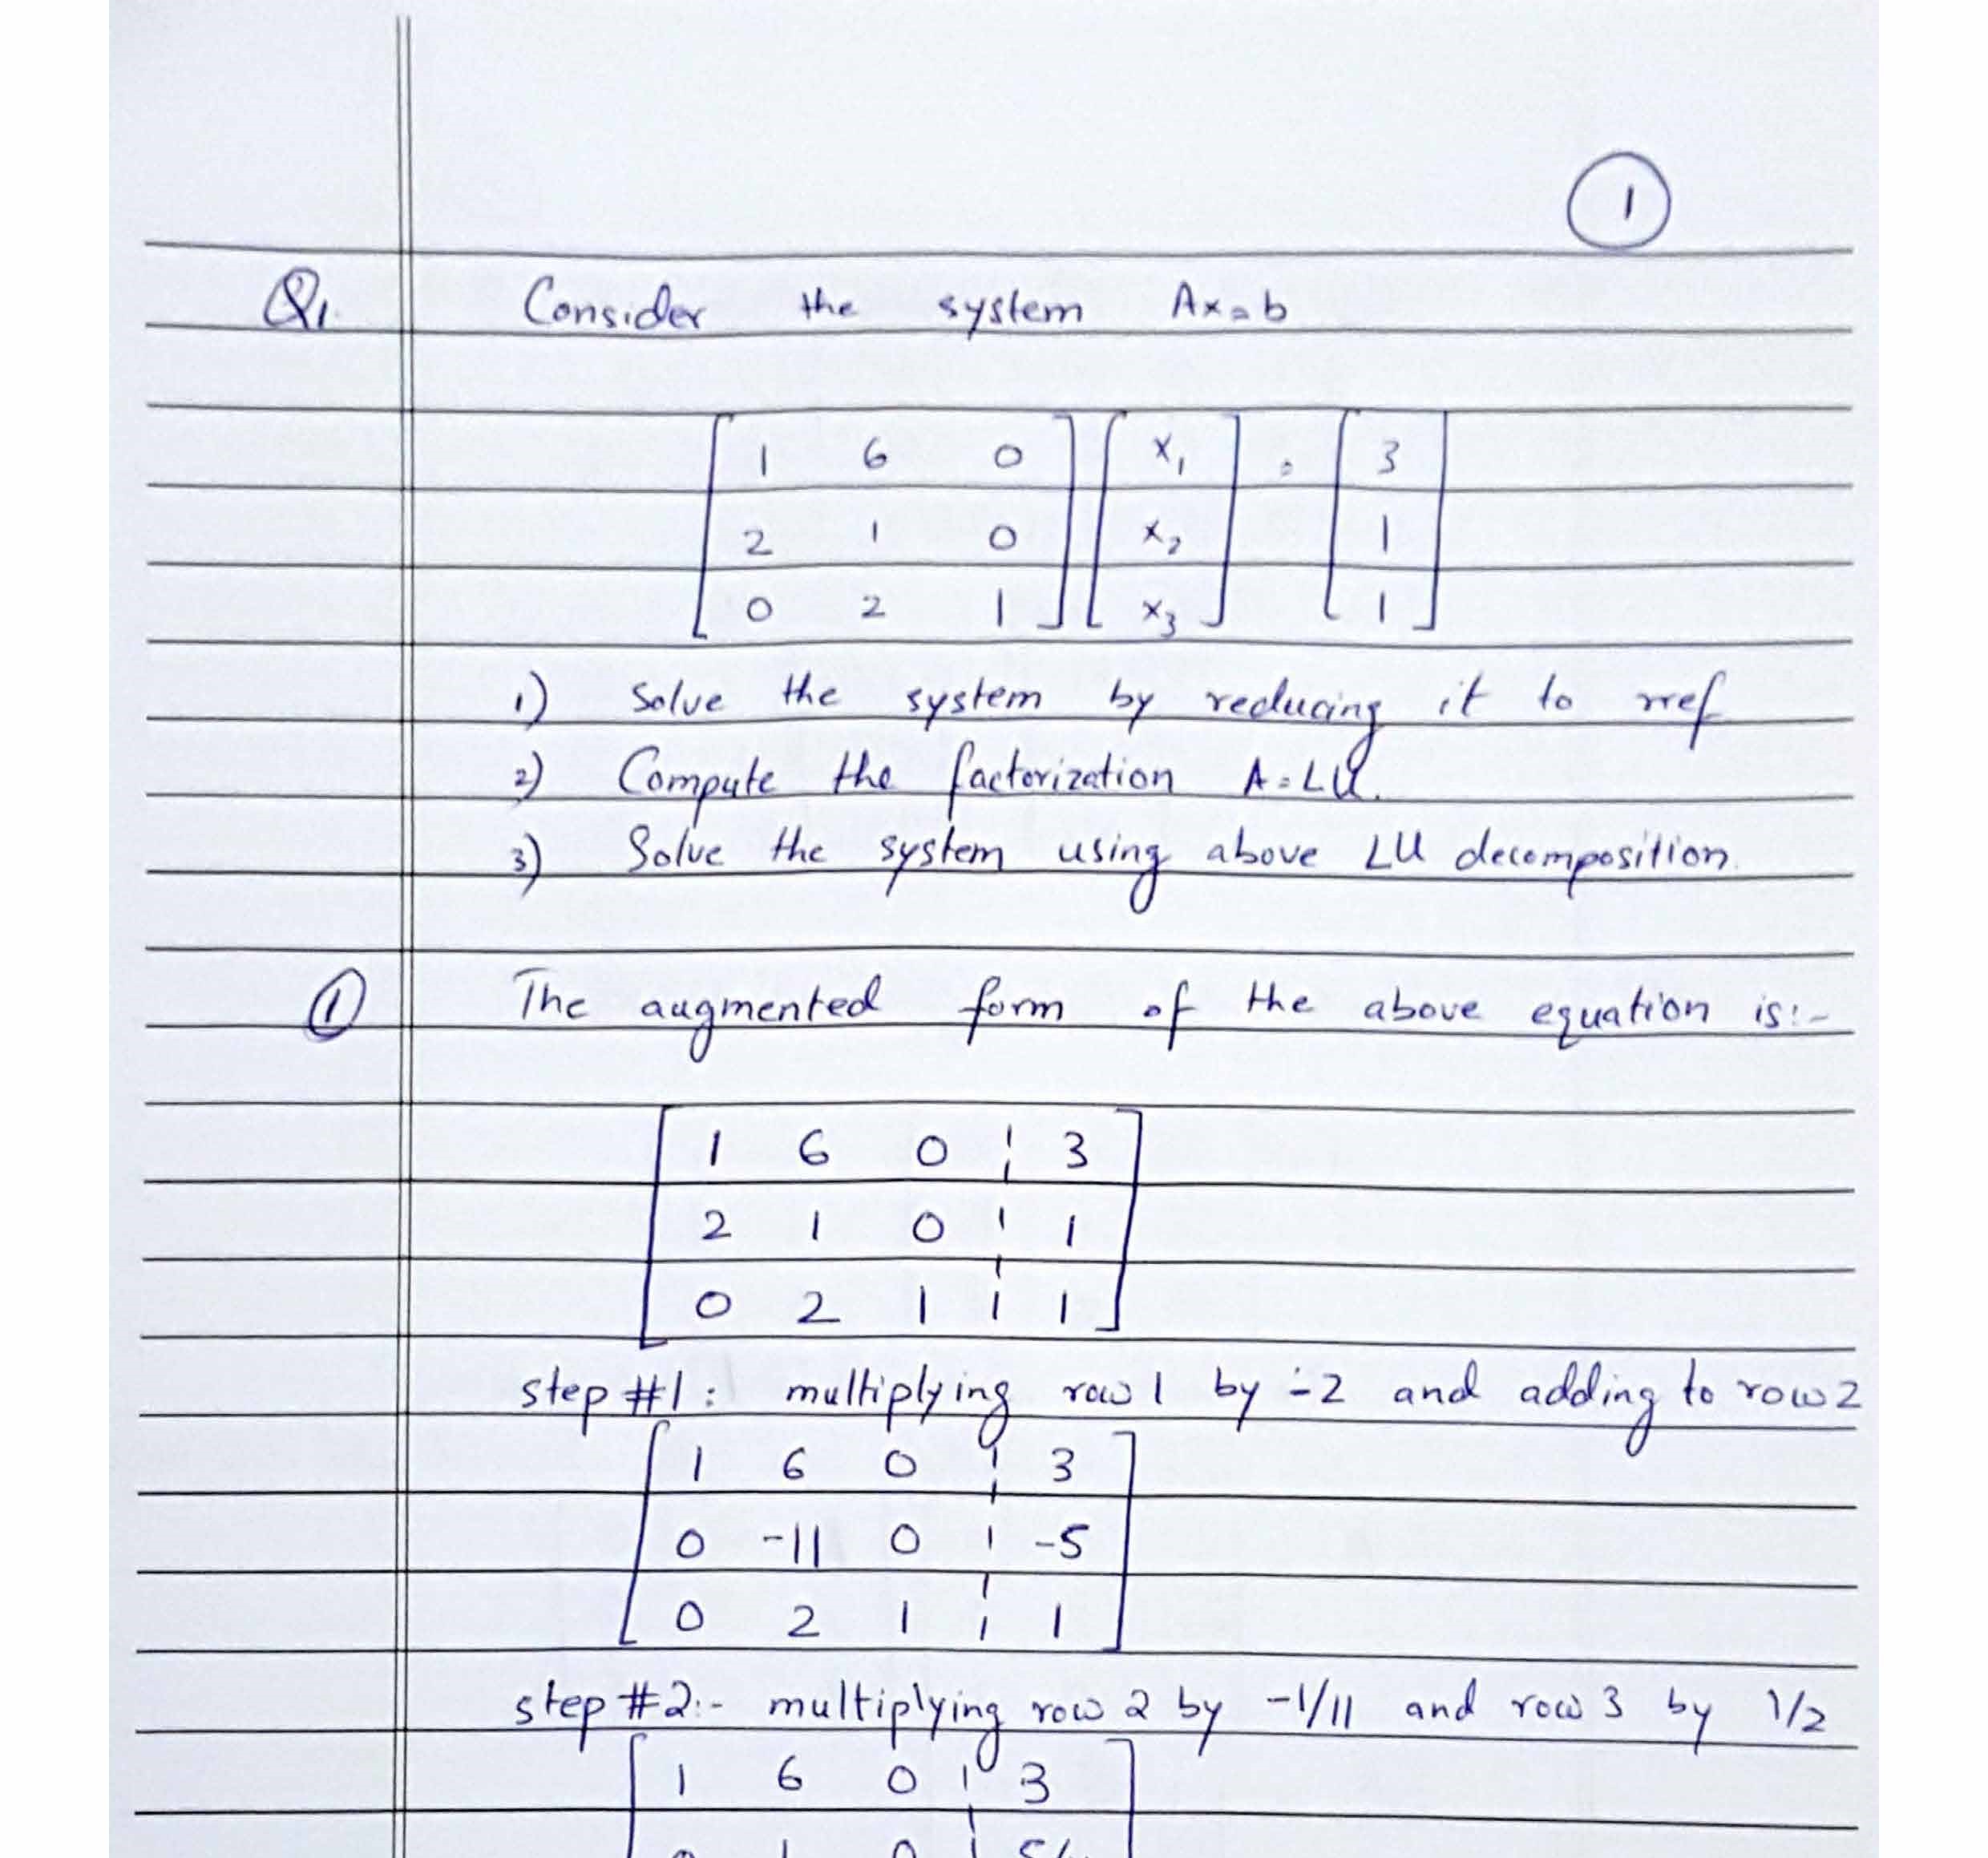 1
Q1. Consider the system Ax=b
[ 1 6 0 ] [ x₁ ] = [ 3 ]
[ 2 1 0 ] [ x₂ ] [ 1 ]
[ 0 2 1 ] [ x₃ ] [ 1 ]
1) Solve the system by reducing it to rref
2) Compute the factorization A=LU.
3) Solve the system using above LU decomposition.
① The augmented form of the above equation is:-
[ 1 6 0 ¦ 3 ]
[ 2 1 0 ¦ 1 ]
[ 0 2 1 ¦ 1 ]
step #1: multiplying row 1 by -2 and adding to row 2
[ 1 6 0 ¦ 3 ]
[ 0 -11 0 ¦ -5 ]
[ 0 2 1 ¦ 1 ]
step #2:- multiplying row 2 by -1/11 and row 3 by 1/2
[ 1 6 0 ¦ 3 ]